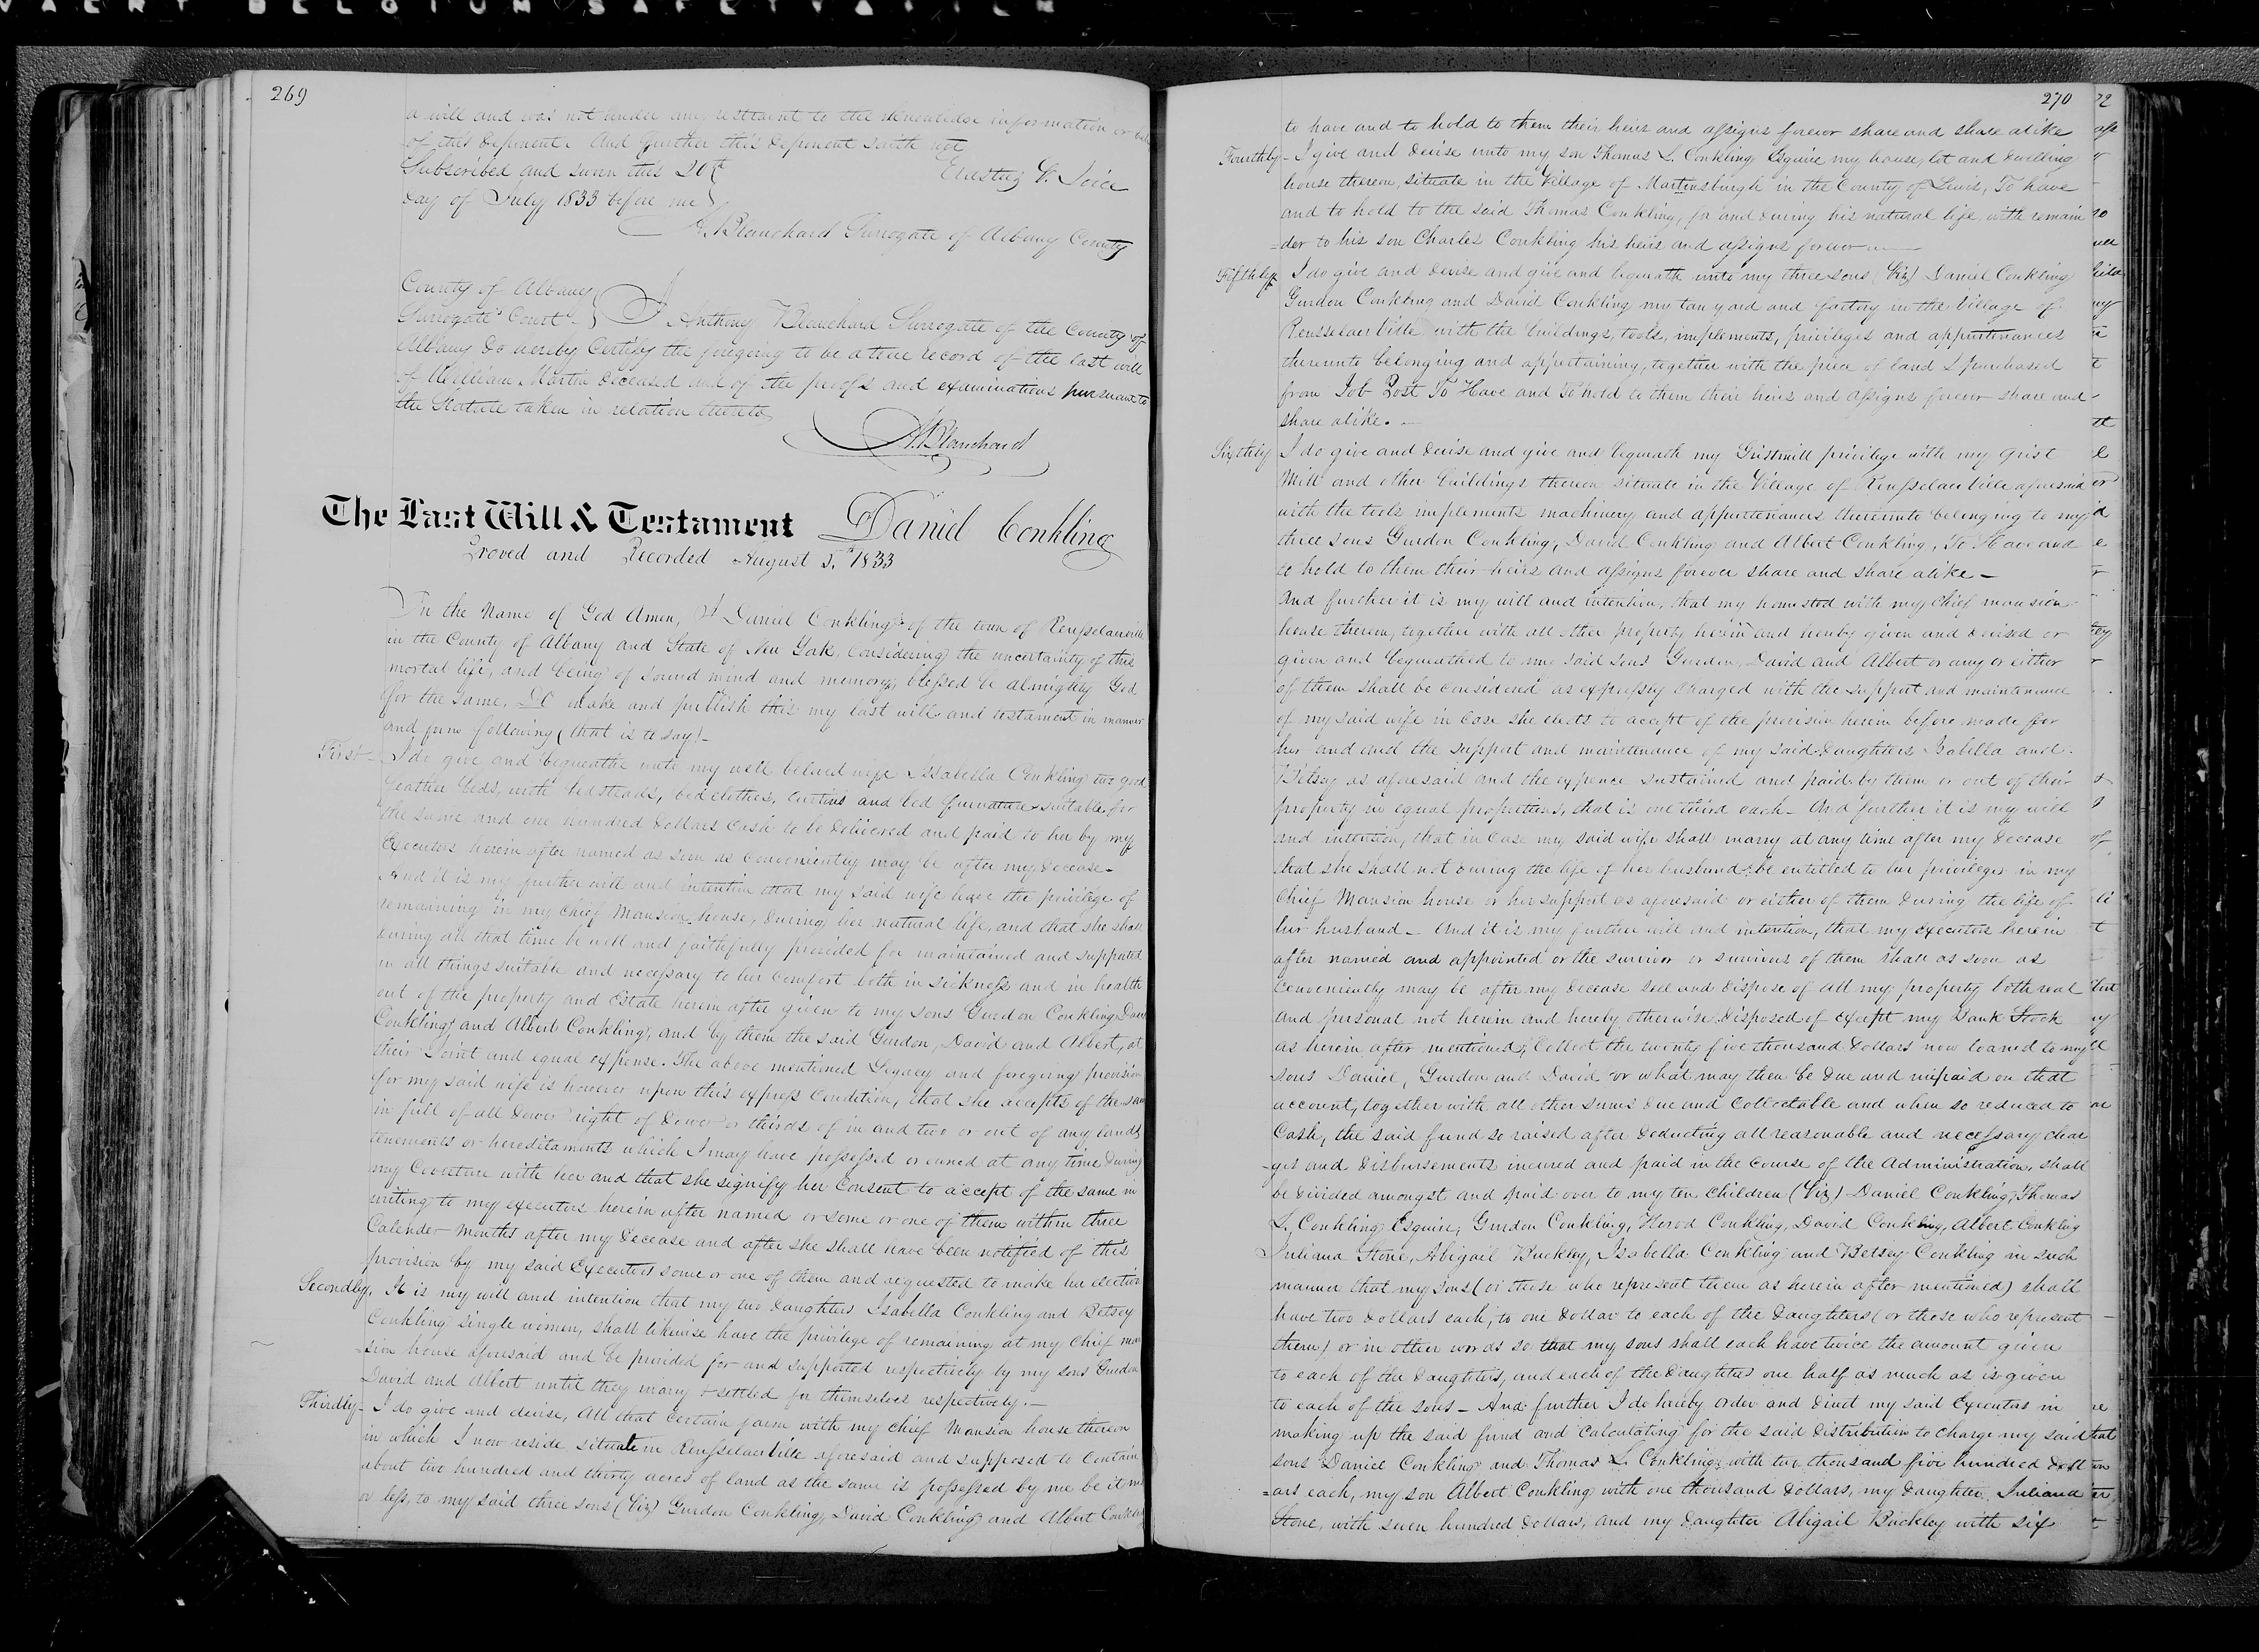 VAERT BELGIUM SAFETY
269
a will and was not under any restraint to the knowledge information or
of this deponent. And further this deponent saith not
Subscribed and sworn this 20th
Erastus
day of July 1833 before me
A. Blanchard Surrogate of Albany County
County of Albany
Surrogate Court
I Anthony Blanchard Surrogate of the County of
Albany do hereby Certify the foregoing to be a true record of the last will
of William Martin deceased and of the proofs and examinations pursuant to
the Statute taken in relation thereto
A. Blanchard
The Last Will & Testament Daniel Conkling
Proved and Recorded August 5th 1833
In the Name of God Amen, I Daniel Conkling of the town of Rensselaerville
in the County of Albany and State of New York, Considering the uncertainty of this
mortal life, and being of sound mind and memory, blessed be almighty God
for the same, Do make and publish this my last will and testament in manner
and form following (that is to say)-
First- I do give and bequeathe unto my well beloved wife Issabella Conkling two good
feather beds, with bedsteads, bed clothes, curtins and bed furniture suitable for
the same and one hundred dollars cash to be delivered and paid to her by my
Executors herein after named as soon as conveniently may be after my decease-
And it is my further will and intention that my said wife have the privilege of
remaining in my Chief Mansion house, during her natural life, and that she shall
during all that time be well and faithfully provided for maintained and supported
in all things suitable and necessary to her comfort both in sickness and in health
out of the property and Estate herein after given to my sons Gurdon Conkling David
Conkling and Albert Conkling, and by them the said Gurdon, David and Albert, at
their Joint and equal expense. The above mentioned Legacy and foregoing provision
for my said wife is however upon this express Condition, that she accepts of the same
in full of all dower right of dower or thirds of in and two or out of any lands
tenements or hereditaments which I may have possessed or owned at any time during
my Coverture with her and that she signify her Consent to accept of the same in
writing to my executors herein after named or some or one of them within three
Calender months after my decease and after she shall have been notified of this
provision by my said Executors some or one of them and requested to make her election
Secondly, It is my will and intention that my two daughters Isabella Conkling and Betsey
Conkling single women, shall likewise have the privilege of remaining at my Chief man
=sion house aforesaid and be provided for and supported respectively by my sons Gurdon
David and Albert until they marry & settled for themselves respectively.-
Thirdly- I do give and devise, All that certain farm with my chief Mansion house thereon
in which I now reside situate in Rensselaerville aforesaid and supposed to Contain
about two hundred and thirty acres of land as the same is possessed by me be it more
or less, to my said three sons (Viz) Gurdon Conkling, David Conkling and Albert Conkling
270
to have and to hold to them their heirs and assigns forever share and share alike
Fourthly- I give and devise unto my son Thomas L. Conkling Esquire my house, lot and dwelling
house thereon, situate in the Village of Martinsburgh in the County of Lewis, To have
and to hold to the said Thomas Conkling, for and during his natural life, with remain
=der to his son Charles Conkling his heirs and assigns forever
Fifthly I do give and devise and give and bequeath unto my three sons (Viz) Daniel Conkling
Gurdon Conkling and David Conkling my tan yard and factory in the Village of
Rensselaerville with the buildings, tools, implements, privileges and appurtenances
thereunto belonging and appertaining, together with the piece of land I purchased
from Job Post To Have and To hold to them their heirs and assigns forever share and
share alike.-
Sixthly I do give and devise and give and bequeath my Gristmill privilege with my Grist
Mill and other buildings thereon situate in the Village of Rensselaerville aforesaid
with the tools implements machinery and appurtenances thereunto belonging to my
three sons Gurdon Conkling, David Conkling and Albert Conkling, To Have and
to hold to them their heirs and assigns forever share and share alike-
And further it is my will and intention, that my homested with my chief mansion
house thereon, together with all other property herein and hereby given and devised or
given and bequeathed to my said sons Gurdon, David and Albert or any or either
of them shall be considered as expressly charged with the support and maintenance
of my said wife in case she elects to accept of the provision herein before made for
her and and the support and maintenance of my said Daughters Isabella and
Betsey as aforesaid and the expence sustained and paid by them or out of their
property in equal proportions, that is one third each- And further it is my will
and intension, that in case my said wife shall marry at any time after my decease
that she shall not during the life of her husband be entitled to her privileges in my
Chief Mansion house or her support as aforesaid or either of them during the life of
her husband- And it is my further will and intention, that my executors herein
after named and appointed or the survivor or survivors of them shall as soon as
Conveniently may be after my decease sell and dispose of all my property both real
and personal not herein and hereby otherwise disposed of except my Bank Stock
as herein after mentioned; Collect the twenty five thousand dollars now loaned to my
sons Daniel, Gurdon and David or what may then be due and unpaid on that
account, together with all other sums due and Collectable and when so reduced to
Cash, the said fund so raised after deducting all reasonable and necessary char
-ges and disbursements incured and paid in the course of the Administration, shall
be divided amongst and paid over to my ten children (Viz) Daniel Conkling, Thomas
L. Conkling Esquire, Gurdon Conkling, Herod Conkling, David Conkling, Albert Conkling
Juliana Stone, Abigail Buckley, Isabella Conkling and Betsey Conkling in such
manner that my sons (or those who represent them as herein after mentioned) shall
have two dollars each, to one dollar to each of the daughters (or those who represent
them) or in other words so that my sons shall each have twice the amount given
to each of the daughters, and each of the Daughters one half as much as is given
to each of the sons- And further I do hereby order and direct my said Executors in
making up the said fund and calculating for the said distribution to charge my said
sons Daniel Conkling and Thomas L. Conkling with two thousand five hundred doll
=ars each, my son Albert Conkling with one thousand dollars, my daughter Juliana
Stone, with seven hundred dollars, and my daughter Abigail Buckley with six